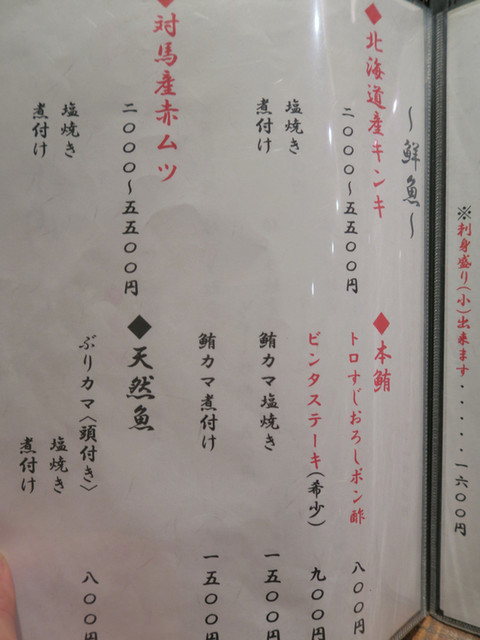 ※刺身盛り(小)出来ます・・・・・・一六〇〇円
～鮮魚～
◆北海道産キンキ
二〇〇〇～五五〇〇円
塩焼き
煮付け
◆対馬産赤ムツ
二〇〇〇～五五〇〇円
塩焼き
煮付け
◆本鮪
トロすじおろしポン酢 八〇〇円
ビンタステーキ(希少) 九〇〇円
鮪カマ塩焼き 一五〇〇円
鮪カマ煮付け 一五〇〇円
◆天然魚
ぶりカマ〈頭付き〉 八〇〇円
塩焼き
煮付け